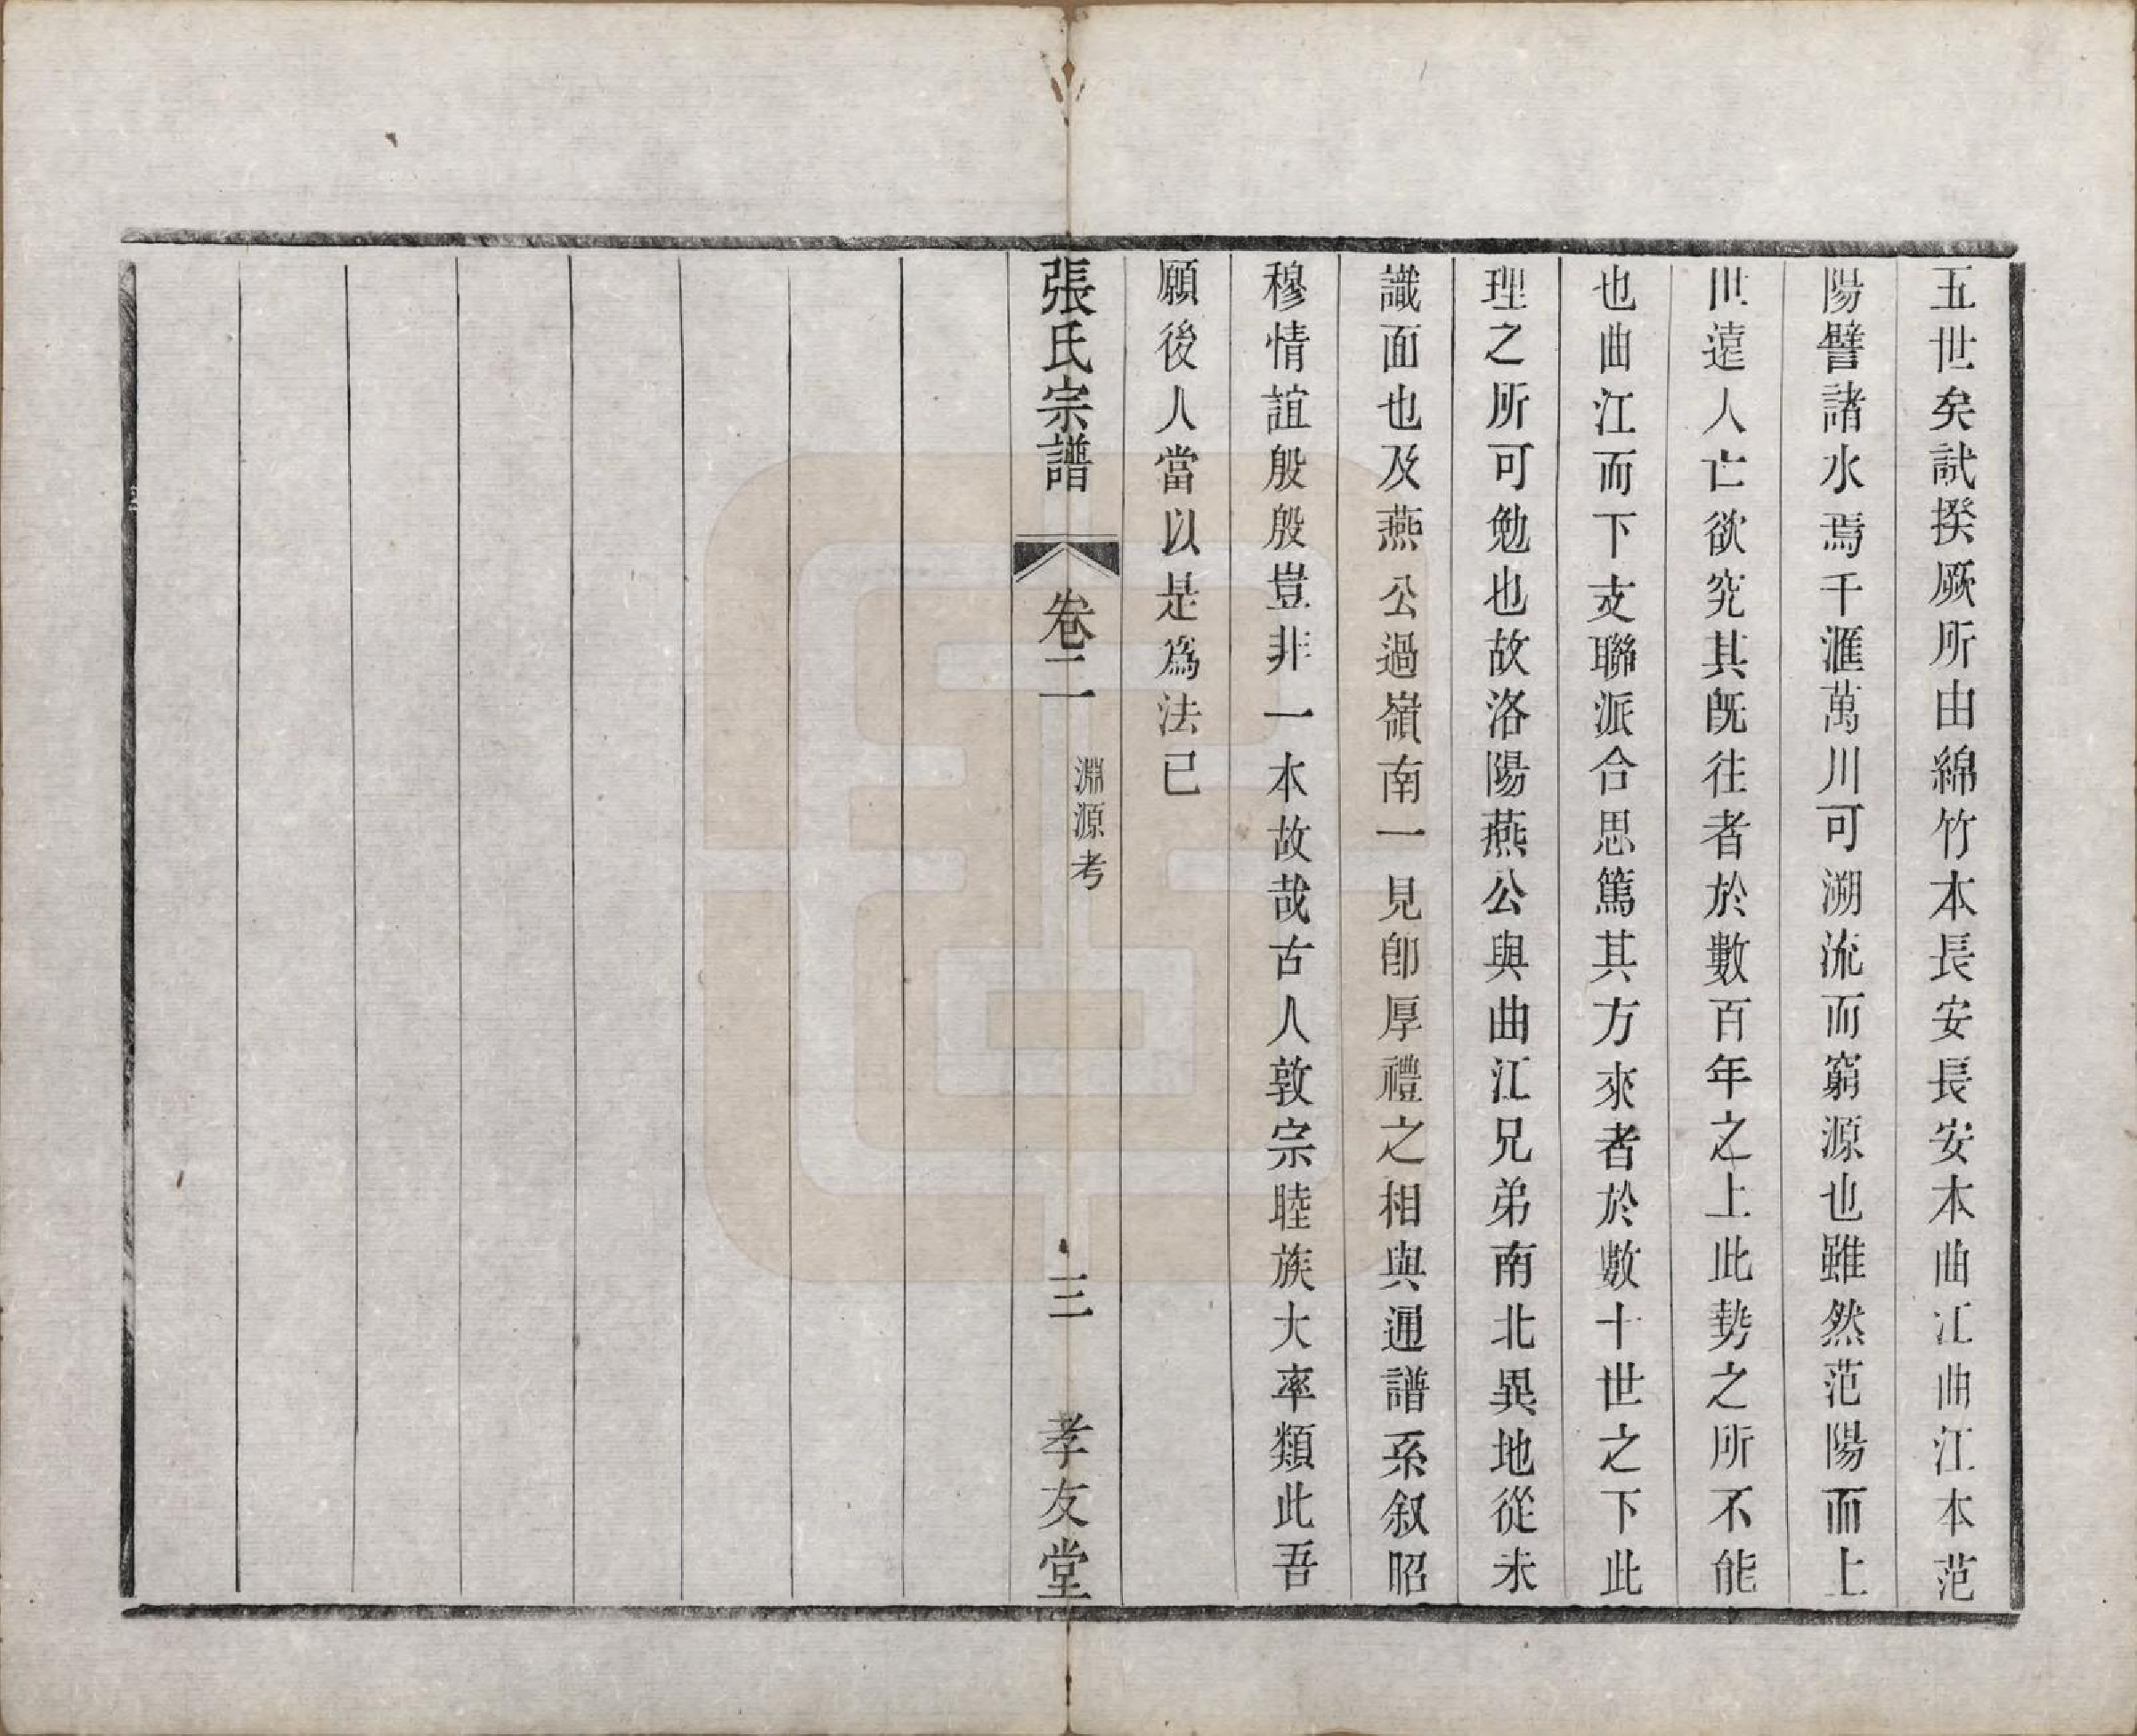 五世矣試揆厥所由綿竹本長安長安本曲江曲江本范
陽譬諸水焉千滙萬川可溯流而窮源也雖然范陽而上
世遠人亡欲究其既往者於數百年之上此勢之所不能
也曲江而下支聯派合思篤其方來者於數十世之下此
理之所可勉也故洛陽燕公與曲江兄弟南北異地從未
識面也及燕公過嶺南一見卽厚禮之相與通譜系叙昭
穆情誼殷殷豈非一本故哉古人敦宗睦族大率類此吾
願後人當以是爲法已
張氏宗譜 卷二 淵源考 三 孝友堂